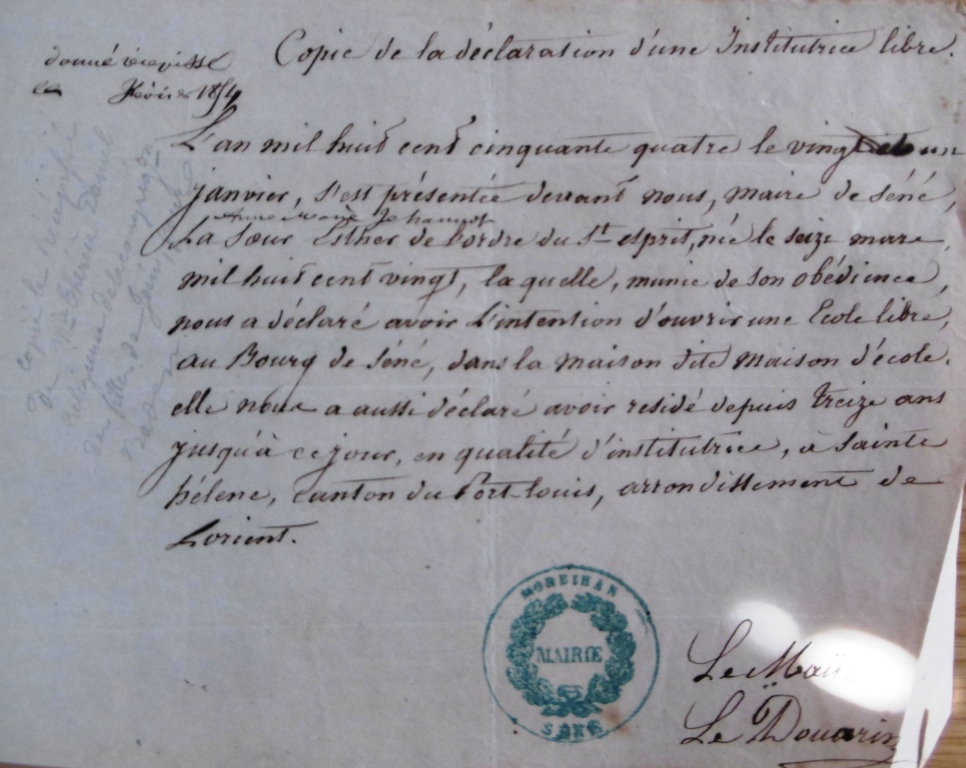 Copie de la déclaration d'une Institutrice libre.
donné récépissé
le février 1854
L'an mil huit cent cinquante quatre le vingt et un
janvier, s'est présentée devant nous, maire de Séné,
anne marie Jehannot
La Sœur Esther de l'ordre du St esprit, née le seize mars
mil huit cent vingt, la quelle, munie de son obédience,
nous a déclaré avoir L'intention d'ouvrir une Ecole libre,
au Bourg de Séné, dans la maison dite maison d'école.
elle nous a aussi déclaré avoir residé depuis treize ans
jusqu'à ce jour, en qualité d'institutrice, à Sainte
hélene, canton du Port-louis, arrondissement de
Lorient.
copié le récépissé
de Thérèse Daniel
religieuse de la congrégation
des filles de Jésus
MORBIHAN
MAIRIE
SÉNÉ
Le Maire
Le Douarin